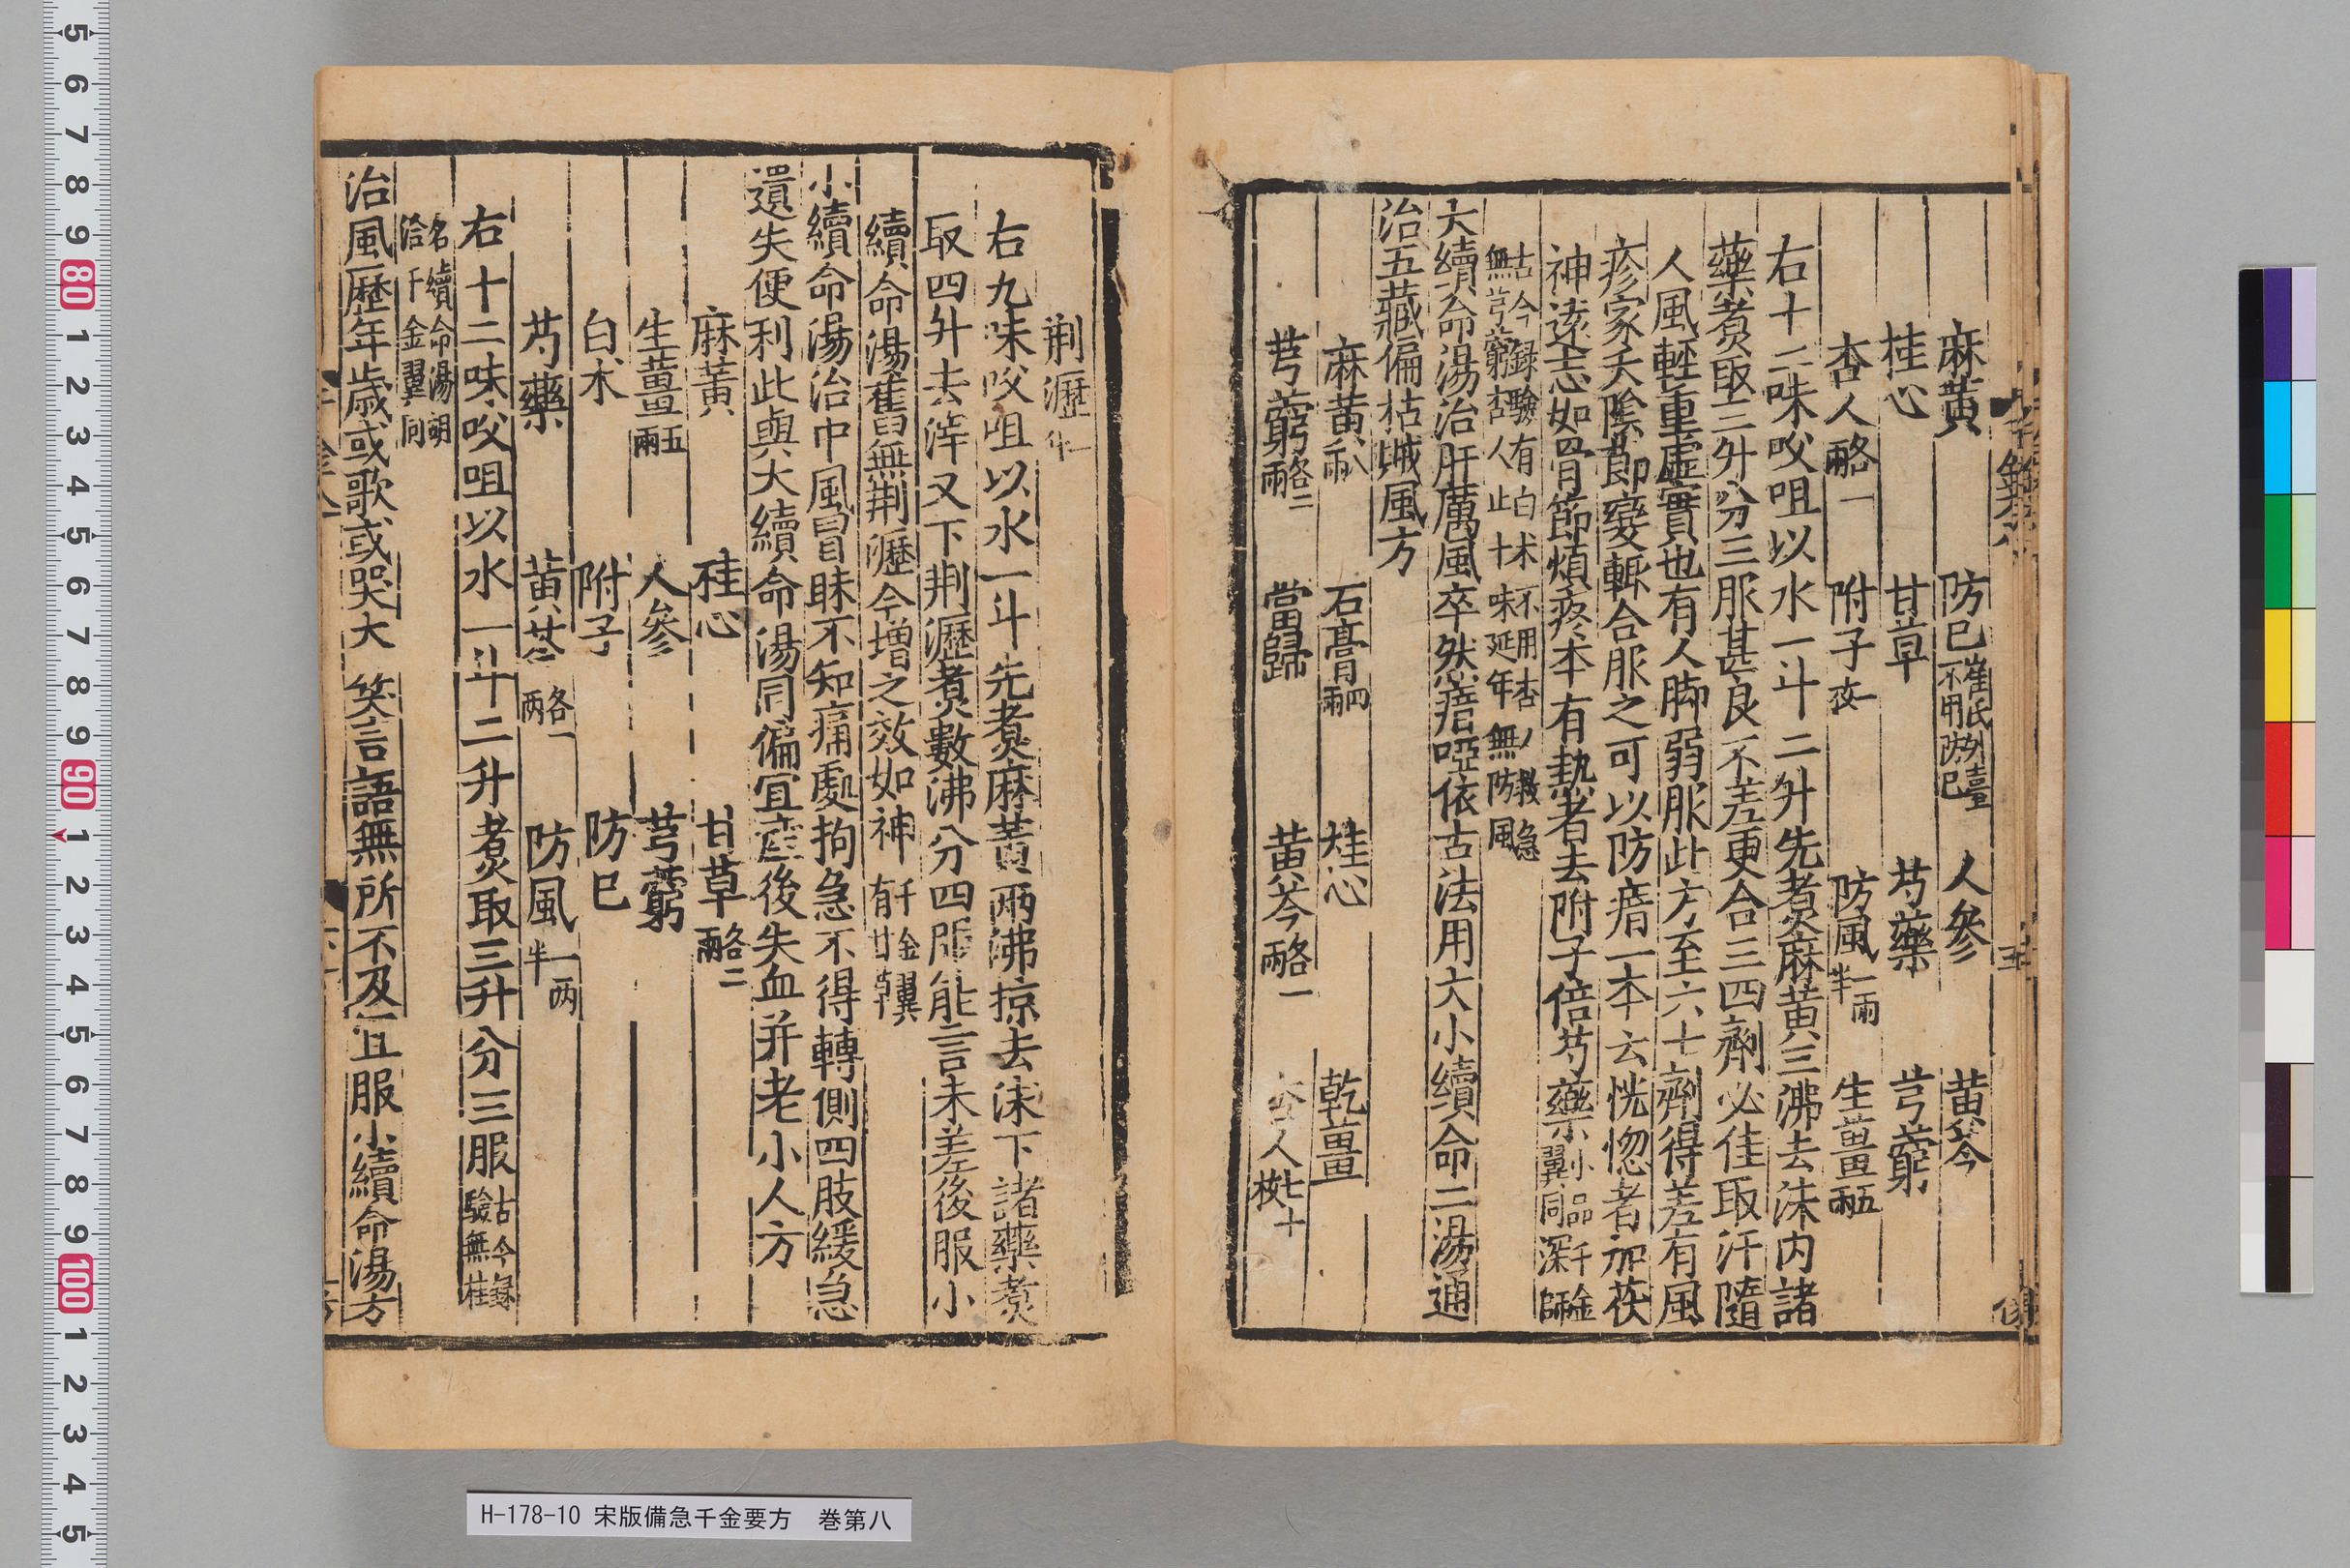 麻黄 防已崔氏外臺不用防已 人參 黄芩
桂心 甘草 芍藥 芎藭
杏人各一兩 附子一枚 防風一兩半 生薑五兩
右十二味㕮咀以水一斗二升先煮麻黄三沸去沫内諸
藥煮取三升分三服甚良不差更合三四劑必佳取汗隨
人風輕重虛實也有人脚弱服此方至六七劑得差有風
疹家天陰節變輙合服之可以防瘖一本云恍惚者加茯
神遠志如骨節煩疼本有熱者去附子倍芍藥小品千金翼同深師
古今録驗有白术不用杏人救急無芎藭杏人止十味延年無防風
大續命湯治肝厲風卒然瘖啞依古法用大小續命二湯通
治五藏偏枯賊風方
麻黄八兩 石膏四兩 桂心 乾薑
芎藭各二兩 當歸 黄芩各一兩 杏人七十枚
荆瀝一升
右九味㕮咀以水一斗先煮麻黄兩沸掠去沫下諸藥煮
取四升去滓又下荆瀝煮數沸分四服能言未差後服小
續命湯舊無荆瀝今增之效如神千金翼有甘草
小續命湯治中風冒昧不知痛處拘急不得轉側四肢緩急
遺失便利此與大續命湯同偏宜産後失血并老小人方
麻黄 桂心 甘草各二兩
生薑五兩 人參 芎藭
白术 附子 防已
芍藥 黄芩各一兩 防風一兩半
右十二味㕮咀以水一斗二升煮取三升分三服古今録驗無桂
名續命湯胡洽千金翼同
治風歷年歲或歌或哭大笑言語無所不及宜服小續命湯方
H-178-10 宋版備急千金要方 巻第八